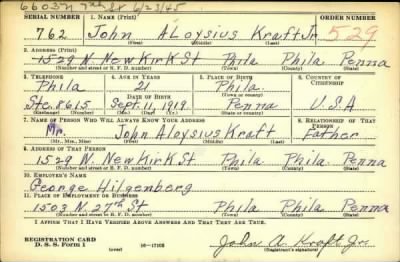 6603 N 7th St 6/23/45
SERIAL NUMBER 1. NAME (Print) ORDER NUMBER
762 John Aloysius Kraft Jr 529
(First) (Middle) (Last)
2. ADDRESS (Print)
1529 N. NewKirk St Phila Phila Penna
(Number and street or R. F. D. number) (Town) (County) (State)
3. TELEPHONE 4. AGE IN YEARS 5. PLACE OF BIRTH 6. COUNTRY OF CITIZENSHIP
Phila 21 Phila
(Town or county)
Ste. 8615 DATE OF BIRTH Sept. 11, 1919 Penna U.S.A
(Exchange) (Number) (Mo.) (Day) (Yr.) (State or country)
7. NAME OF PERSON WHO WILL ALWAYS KNOW YOUR ADDRESS 8. RELATIONSHIP OF THAT PERSON
Mr. John Aloysius Kraft Father
(Mr., Mrs., Miss) (First) (Middle) (Last)
9. ADDRESS OF THAT PERSON
1529 N. NewKirk St Phila. Phila. Penna
(Number and street or R. F. D. number) (Town) (County) (State)
10. EMPLOYER'S NAME
George Hilgenberg
11. PLACE OF EMPLOYMENT OR BUSINESS
1503 N. 27th St Phila Phila Penna
(Number and street or R. F. D. number) (Town) (County) (State)
I AFFIRM THAT I HAVE VERIFIED ABOVE ANSWERS AND THAT THEY ARE TRUE.
REGISTRATION CARD
D. S. S. FORM 1 (over) 16-17105 John A Kraft Jr.
(Registrant's signature)